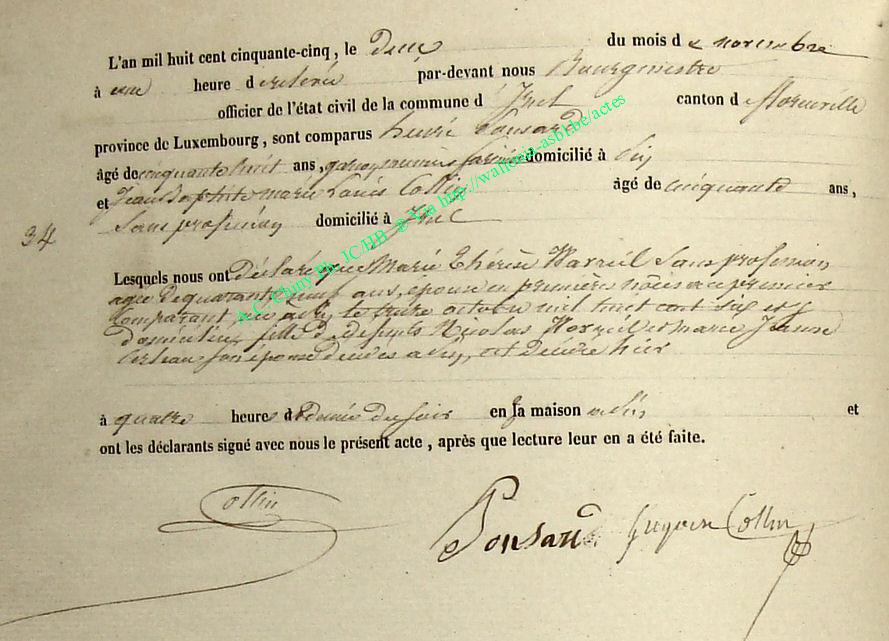 L'an mil huit cent cinquante-cinq, le deux du mois d e novembre
à une heure d e relevée par-devant nous Bourgmestre
officier de l'état civil de la commune d' Izel canton d e florenville
province de Luxembourg, sont comparus henri Ponsard
âgé de cinquante huit ans, domicilié à
et Jean Baptiste marie Louis Collin âgé de cinquante ans,
Sans profession domicilié à Izel
34
Lesquels nous ont Déclaré que Marie Thérèse Sans profession
agée de quarante ans, épouse en premières nôces du premier
Comparant, née à le octobre mil huit cent six et y
domiciliée, fille de défunts Nicolas et marie Jeanne
son épouse décédés à est Décédée hier
à quatre heures et demie du soir en sa maison et
ont les déclarants signé avec nous le présent acte, après que lecture leur en a été faite.
Collin
Ponsard Collin
A.C. Chiny Ph. IC/HB @ Via http://wallonia-asbl.be/actes